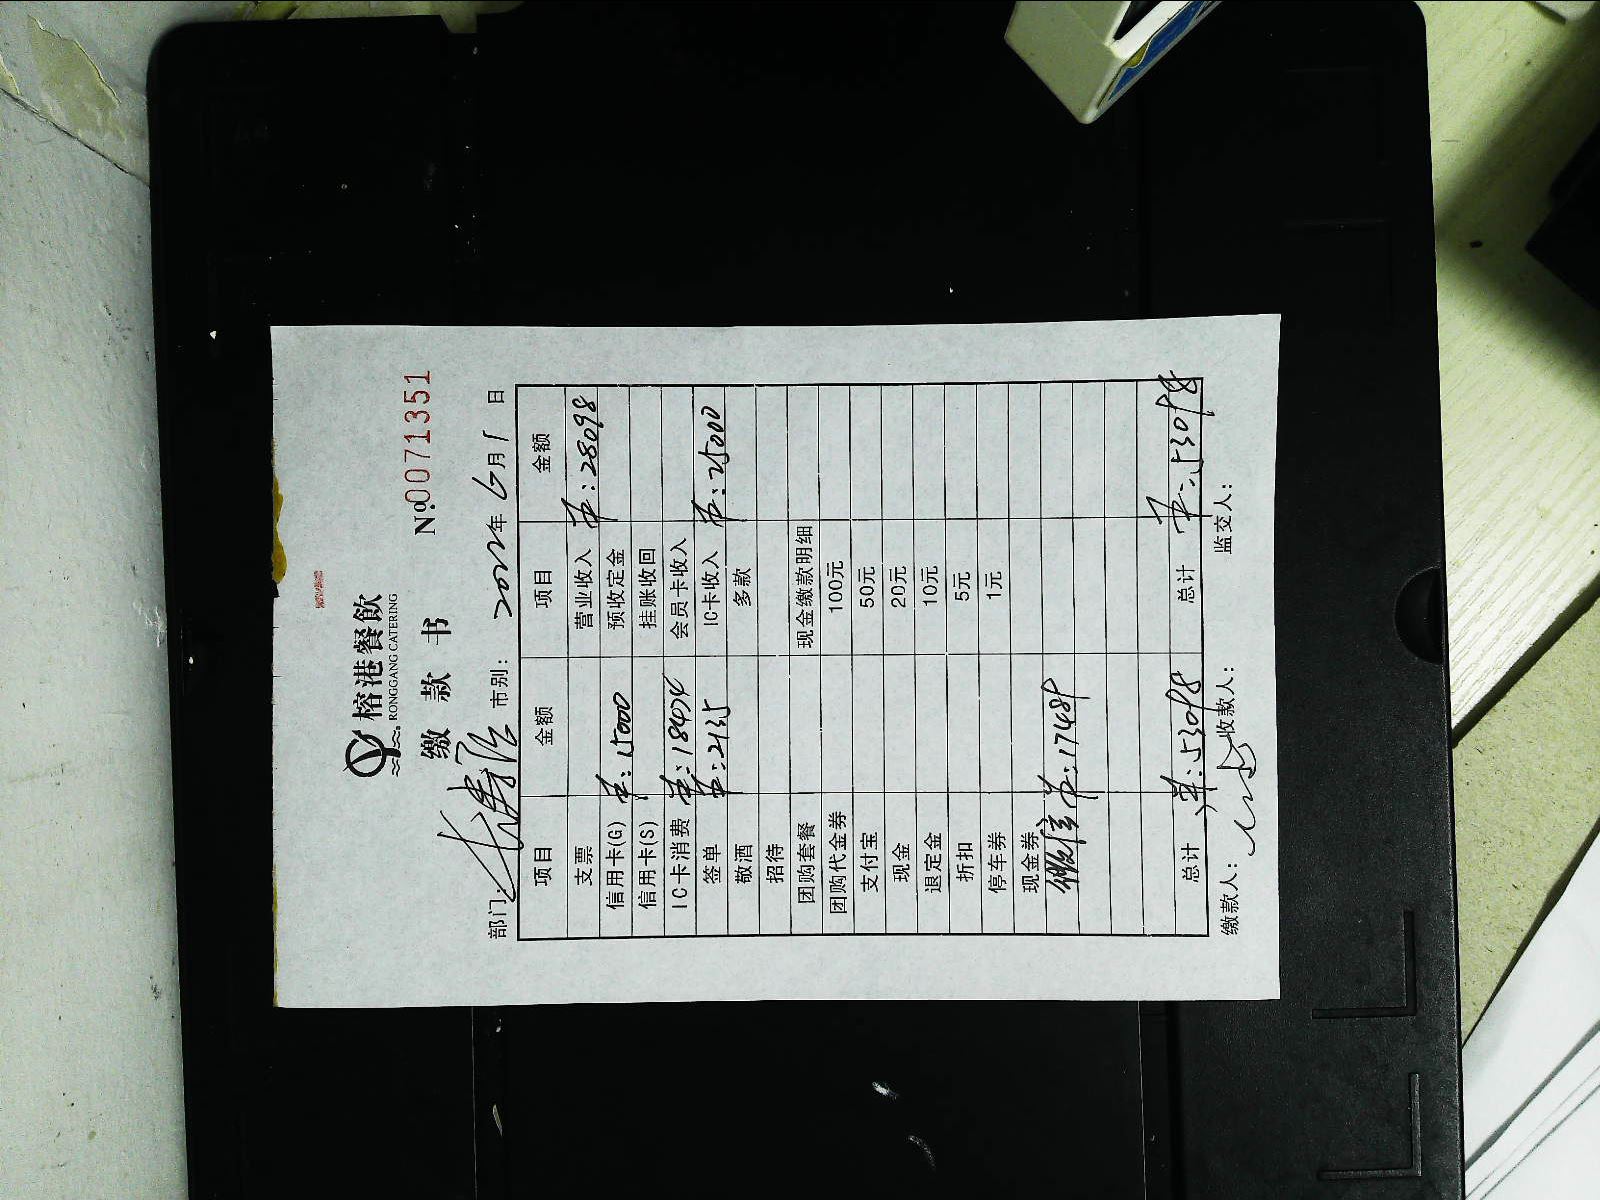 榕港餐飲
RONGGANG CATERING
缴 款 书
№0071351
部门: 市别: 2022年6月1日
项目 金额 项目 金额
支票 营业收入 ¥:28098
信用卡(G) ¥:15000 预收定金
信用卡(S) 挂账收回
IC卡消费 ¥:18474 会员卡收入
签单 ¥:2135 IC卡收入 ¥:25000
敬酒 多款
招待
团购套餐 现金缴款明细
团购代金券 100元
支付宝 50元
现金 20元
退定金 10元
折扣 5元
停车券 1元
现金券
微信 ¥:17489
总计 ¥:53098 总计 ¥:53098
缴款人: 收款人: 监交人: